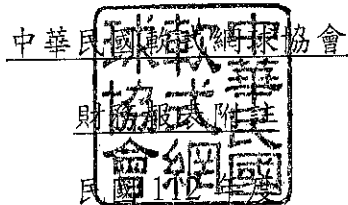 中華民國軟式網球協會
財務報表附註
民國112年度
中華民國
軟式網
球協會